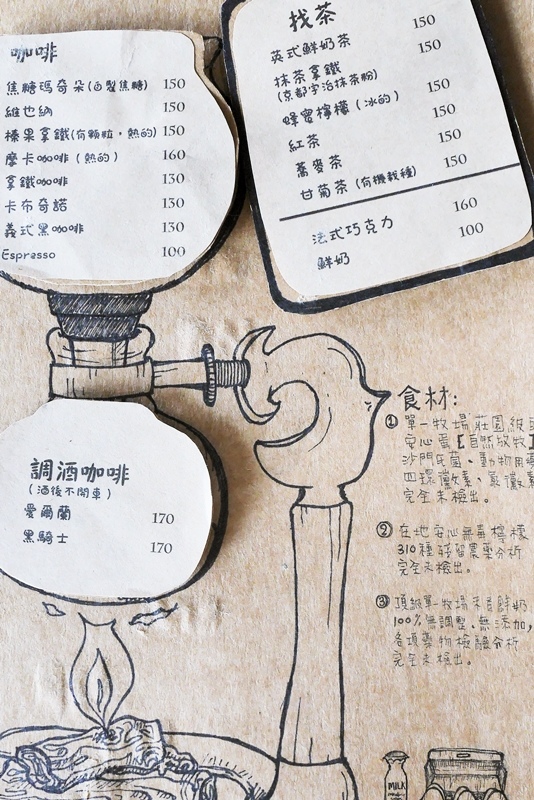 咖啡
焦糖瑪奇朵(自製焦糖) 150
維也納 150
榛果拿鐵(有顆粒,熱的) 150
摩卡咖啡(熱的) 160
拿鐵咖啡 130
卡布奇諾 130
義式黑咖啡 130
Espresso 100
找茶
英式鮮奶茶 150
抹茶拿鐵 150
(京都宇治抹茶粉)
蜂蜜檸檬(冰的) 150
紅茶 150
蕎麥茶 150
甘菊茶(有機栽種) 150
法式巧克力 160
鮮奶 100
調酒咖啡
(酒後不開車)
愛爾蘭 170
黑騎士 170
食材:
① 單一牧場莊園級
安心蛋【自然放牧】
沙門氏菌、動物用
四環黴素、氯黴素
完全未檢出。
② 在地安心無毒檸檬
310種殘留農藥分析
完全未檢出。
③ 頂級單一牧場 鮮奶
100%無調整、無添加,
各項藥物檢驗分析
完全未檢出。
MILK